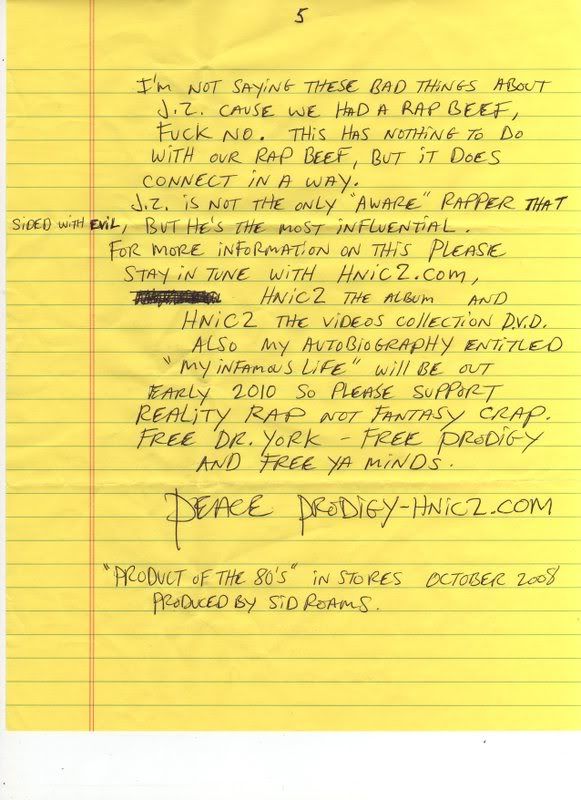 5
I'M NOT SAYING THESE BAD THINGS ABOUT
J.Z. CAUSE WE HAD A RAP BEEF,
FUCK NO. THIS HAS NOTHING TO DO
WITH OUR RAP BEEF, BUT IT DOES
CONNECT IN A WAY.
J.Z. IS NOT THE ONLY "AWARE" RAPPER THAT
SIDED WITH EVIL, BUT HE'S THE MOST INFLUENTIAL.
FOR MORE INFORMATION ON THIS PLEASE
STAY IN TUNE WITH HNIC2.COM,
HNIC2 THE ALBUM AND
HNIC2 THE VIDEOS COLLECTION D.V.D.
ALSO MY AUTOBIOGRAPHY ENTITLED
"MY INFAMOUS LIFE" WILL BE OUT
EARLY 2010 SO PLEASE SUPPORT
REALITY RAP NOT FANTASY CRAP.
FREE DR. YORK - FREE PRODIGY
AND FREE YA MINDS.
PEACE PRODIGY-HNIC2.COM
"PRODUCT OF THE 80'S" IN STORES OCTOBER 2008
PRODUCED BY SID ROAMS.